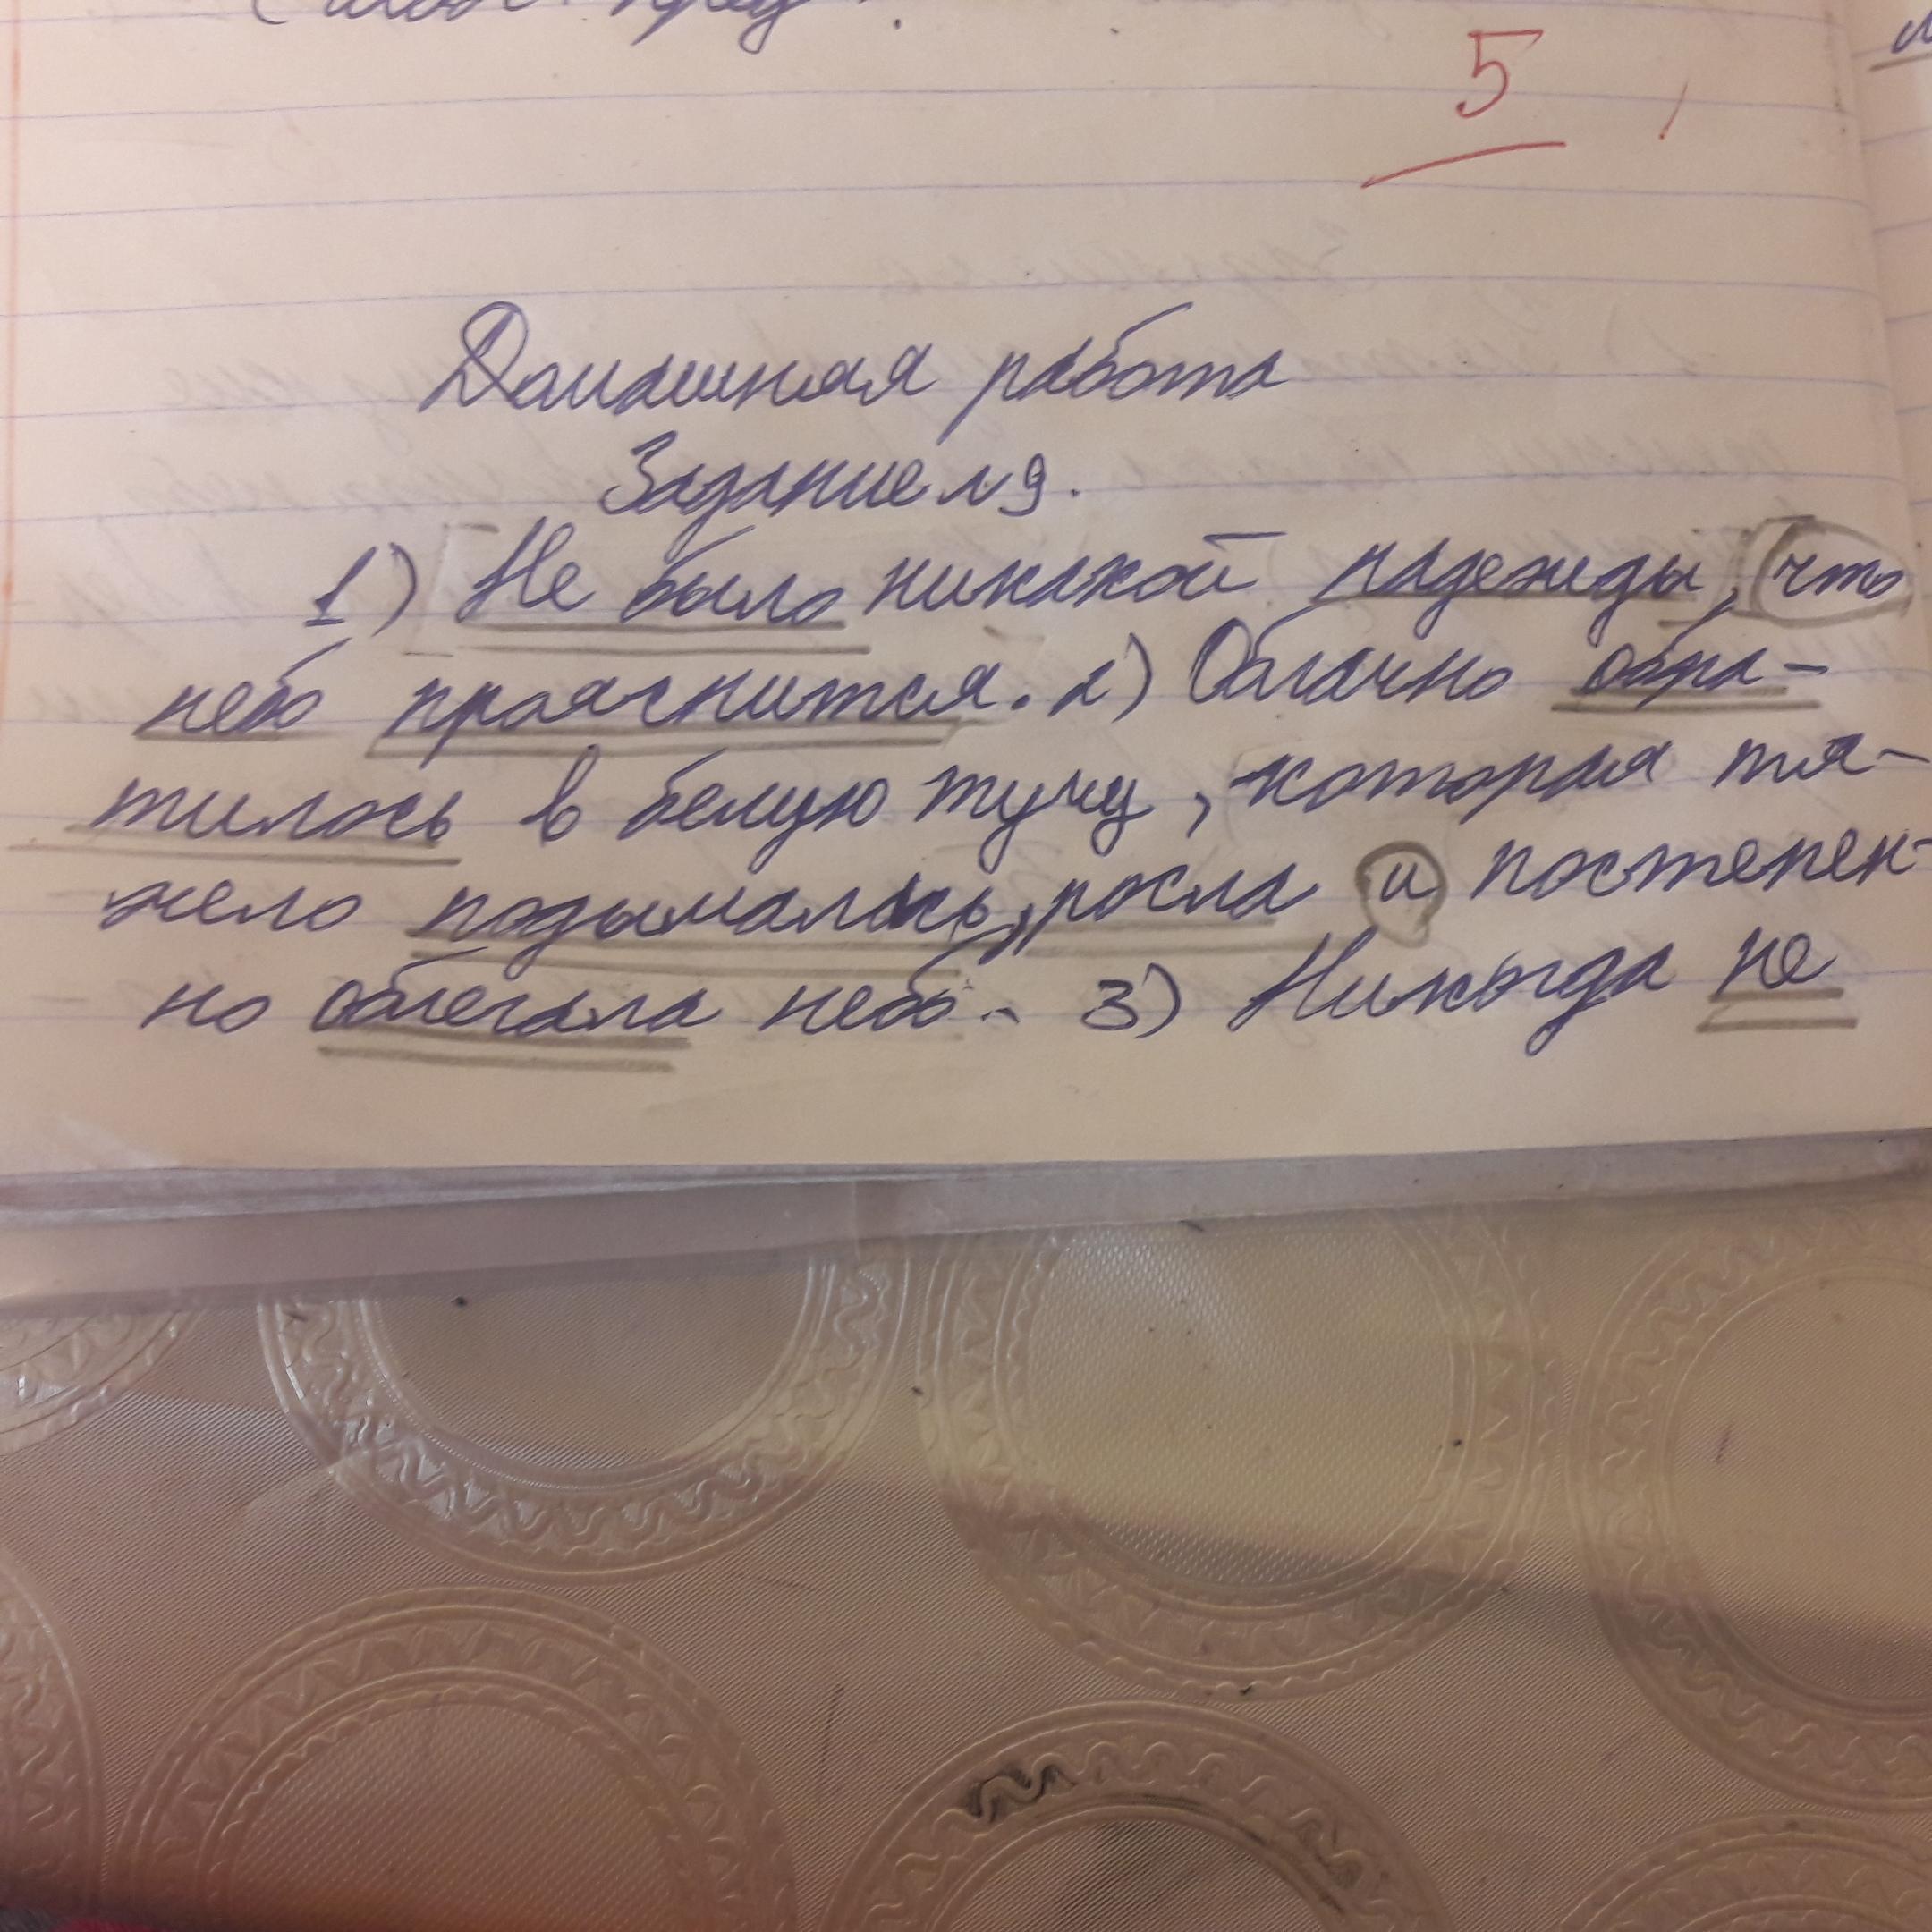 5
Домашняя работа
Задание №9.
1) Не было никакой надежды, что
небо прояснится. 2) Облачно обра-
тилось в белую тучу, которая тя-
жело подымалась, росла и постепен-
но облегала небо. 3) Никогда не